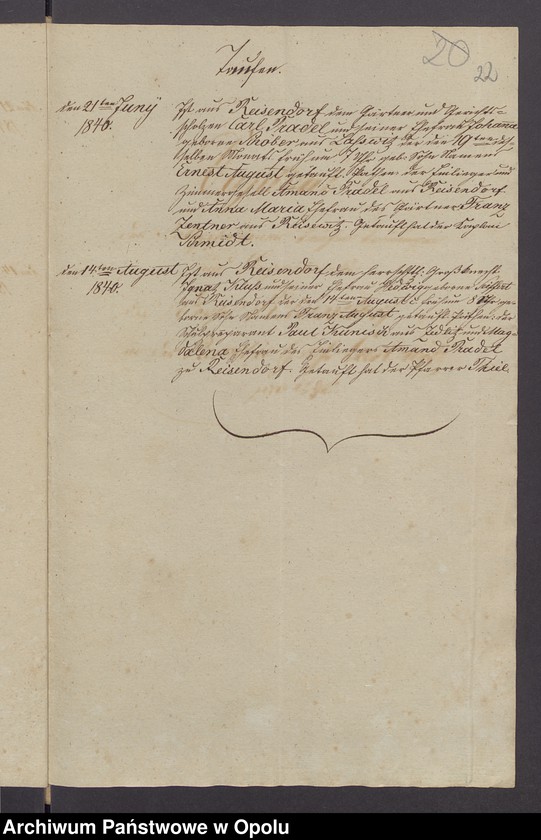 20
22
Taufen.
den 21ten Juny
1840.
Ist aus Reisendorf dem Gärtner und Gerichts-
scholzen Carl Pradel und seiner Ehefrau Johanna
geborene Kober aus Lasswitz der den 19ten des-
selben Monats früh um 7 Uhr geb. Sohn Namens
Ernest August getauft. Pathen: der Einlieger und
Zimmergesell Amand Pradel aus Reisendorf
und Anna Maria Ehefrau des Gärtner Franz
Zentner aus Reisewitz. Getauft hat der Caplan
Schmidt.
den 14ten August
1840.
Ist aus Reisendorf dem herrschftl. Großknecht
Ignatz und seiner Ehefrau Hedwig geborene
aus Reisendorf der den 14ten August c. früh um 8 Uhr ge-
borene Sohn Namens Franz August getauft. Pathen: der
Schulpräparant Paul aus und Mag-
dalena Ehefrau des Einliegers Amand Pradel
zu Reisendorf. Getauft hat der Pfarrer Thiel.
Archiwum Państwowe w Opolu